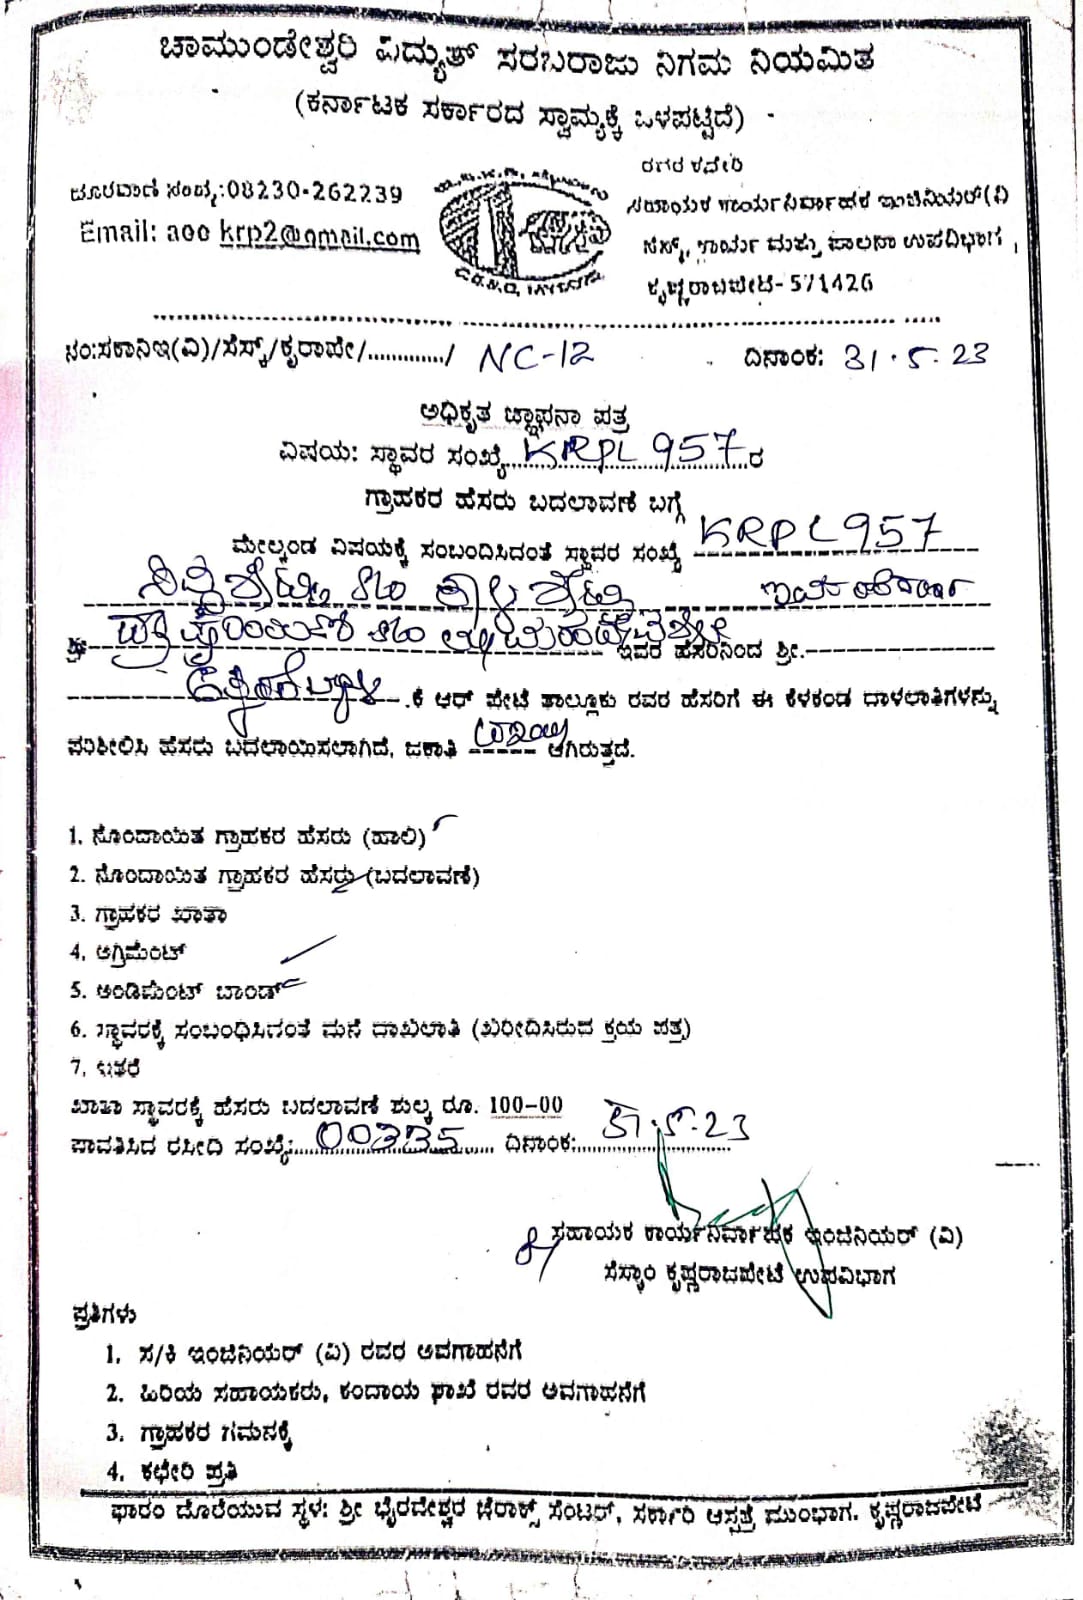 ಚಾಮುಂಡೇಶ್ವರಿ ವಿದ್ಯುತ್ ಸರಬರಾಜು ನಿಗಮ ನಿಯಮಿತ
(ಕರ್ನಾಟಕ ಸರ್ಕಾರದ ಸ್ವಾಮ್ಯಕ್ಕೆ ಒಳಪಟ್ಟಿದೆ)
ದೂರವಾಣಿ ಸಂಖ್ಯೆ:08230-262239
Email: aoo krp2@gmail.com
ರವರ ಕಛೇರಿ
ಸಹಾಯಕ ಕಾರ್ಯನಿರ್ವಾಹಕ ಇಂಜಿನಿಯರ್(ವಿ
ಸೆಸ್ಕ್, ಕಾರ್ಯ ಮತ್ತು ಪಾಲನಾ ಉಪವಿಭಾಗ,
ಕೃಷ್ಣರಾಜಪೇಟೆ-571426
ನಂ:ಸಕಾನಿಇ(ವಿ)/ಸೆಸ್ಕ್/ಕೃರಾಪೇ/............./ NC-12 ದಿನಾಂಕ: 31.5.23
ಅಧಿಕೃತ ಜ್ಞಾಪನಾ ಪತ್ರ
ವಿಷಯ: ಸ್ಥಾವರ ಸಂಖ್ಯೆ KRPL 957 ರ
ಗ್ರಾಹಕರ ಹೆಸರು ಬದಲಾವಣೆ ಬಗ್ಗೆ
ಮೇಲ್ಕಂಡ ವಿಷಯಕ್ಕೆ ಸಂಬಂದಿಸಿದಂತೆ ಸ್ಥಾವರ ಸಂಖ್ಯೆ KRPL957
ಶ್ರೀ ಇವರ ಹೆಸರಿನಿಂದ ಶ್ರೀ.
.ಕೆ ಆರ್ ಪೇಟೆ ತಾಲ್ಲೂಕು ರವರ ಹೆಸರಿಗೆ ಈ ಕೆಳಕಂಡ ದಾಳಲಾತಿಗಳನ್ನು
ಪರಿಶೀಲಿಸಿ ಹೆಸರು ಬದಲಾಯಿಸಲಾಗಿದೆ, ಜಕಾತಿ ಆಗಿರುತ್ತದೆ.
1. ನೊಂದಾಯಿತ ಗ್ರಾಹಕರ ಹೆಸರು (ಹಾಲಿ)
2. ನೊಂದಾಯಿತ ಗ್ರಾಹಕರ ಹೆಸರು (ಬದಲಾವಣೆ)
3. ಗ್ರಾಹಕರ ಖಾತಾ
4, ಅಗ್ರಿಮೆಂಟ್
5. ಅಂಡಿಮೆಂಟ್ ಬಾಂಡ್
6. ಸ್ಥಾವರಕ್ಕೆ ಸಂಬಂಧಿಸಿದಂತೆ ಮನೆ ದಾಖಲಾತಿ (ಖರೀದಿಸಿರುವ ಕ್ರಯ ಪತ್ರ)
7, ಇತರೆ
ಖಾತಾ ಸ್ಥಾವರಕ್ಕೆ ಹೆಸರು ಬದಲಾವಣೆ ಶುಲ್ಕ ರೂ. 100-00
ಪಾವತಿಸಿದ ರಸೀದಿ ಸಂಖ್ಯೆ: 00335 ದಿನಾಂಕ: 31.5.23
ಸಹಾಯಕ ಕಾರ್ಯನಿರ್ವಾಹಕ ಇಂಜಿನಿಯರ್ (ವಿ)
ಸೆಸ್ಕಾಂ ಕೃಷ್ಣರಾಜಪೇಟೆ ಉಪವಿಭಾಗ
ಪ್ರತಿಗಳು
1. ಸ/ಕಿ ಇಂಜಿನಿಯರ್ (ವಿ) ರವರ ಅವಗಾಹನೆಗೆ
2. ಹಿರಿಯ ಸಹಾಯಕರು, ಕಂದಾಯ ಶಾಖೆ ರವರ ಅವಗಾಹನೆಗೆ
3. ಗ್ರಾಹಕರ ಗಮನಕ್ಕೆ
4. ಕಛೇರಿ ಪ್ರತಿ
ಫಾರಂ ದೊರೆಯುವ ಸ್ಥಳ: ಶ್ರೀ ಭೈರವೇಶ್ವರ ಜೆರಾಕ್ಸ್ ಸೆಂಟರ್, ಸರ್ಕಾರಿ ಆಸ್ಪತ್ರೆ ಮುಂಭಾಗ. ಕೃಷ್ಣರಾಜಪೇಟೆ